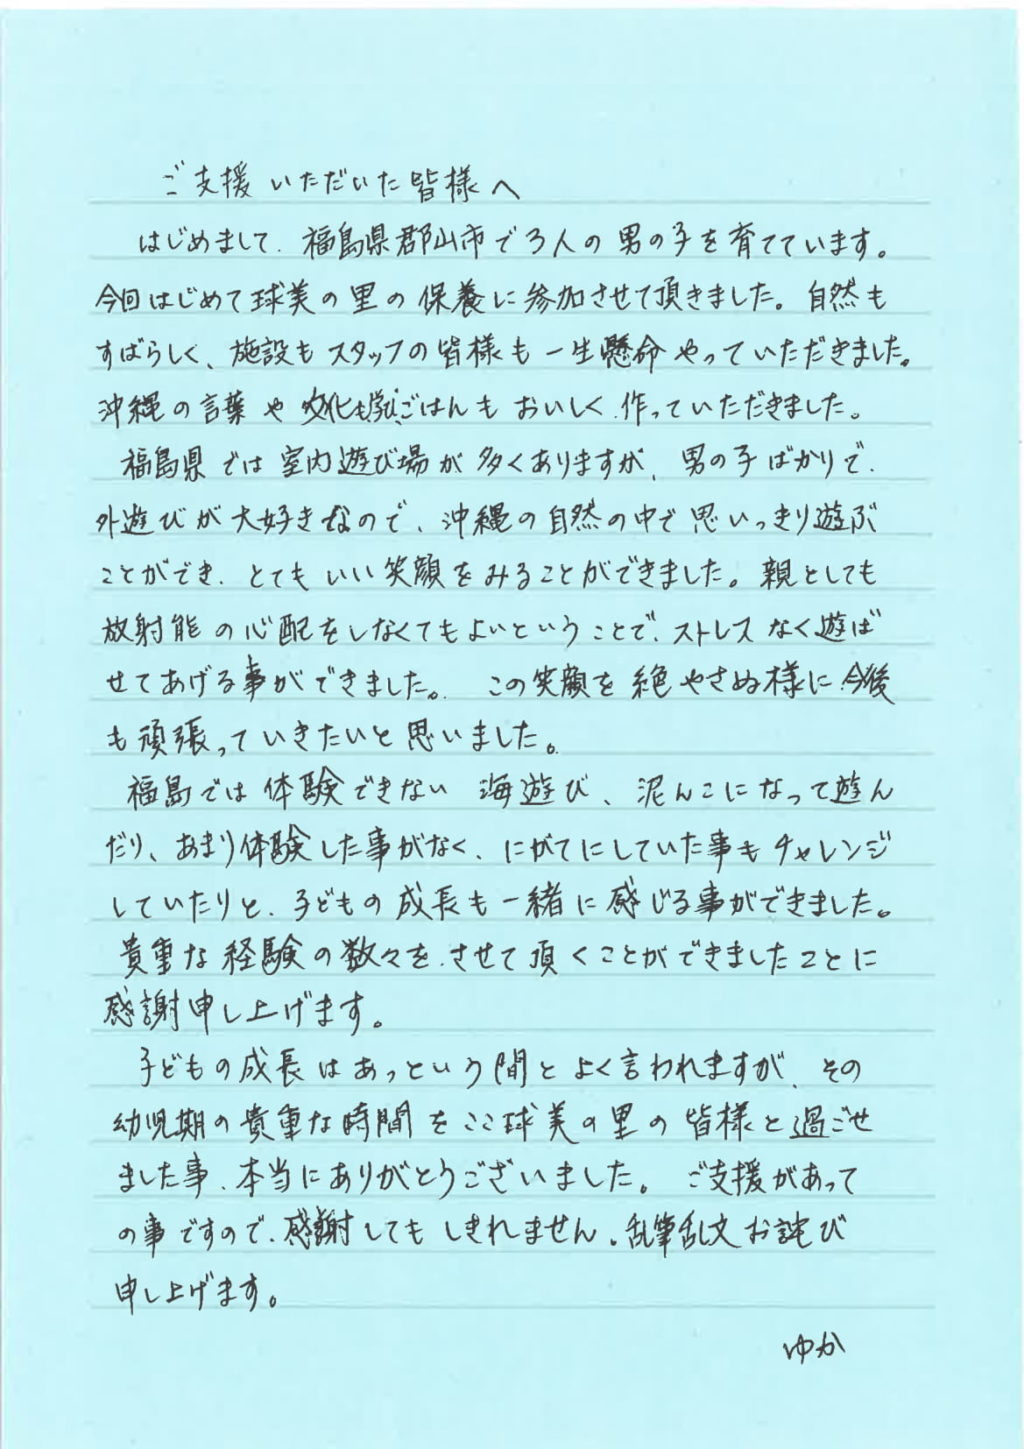 ご支援いただいた皆様へ
はじめまして、福島県郡山市で3人の男の子を育てています。
今回はじめて球美の里の保養に参加させて頂きました。自然も
すばらしく、施設もスタッフの皆様も一生懸命やっていただきました。
沖縄の言葉や文化も学び、ごはんもおいしく、作っていただきました。
福島県では室内遊び場が多くありますが、男の子ばかりで、
外遊びが大好きなので、沖縄の自然の中で思いっきり遊ぶ
ことができ、とてもいい笑顔をみることができました。親としても
放射能の心配をしなくてもよいということで、ストレスなく遊ば
せてあげる事ができました。この笑顔を絶やさぬ様に今後
も頑張っていきたいと思いました。
福島では体験できない海遊び、泥んこになって遊ん
だり、あまり体験した事がなく、にがてにしていた事もチャレンジ
していたりと、子どもの成長も一緒に感じる事ができました。
貴重な経験の数々を、させて頂くことができましたことに
感謝申し上げます。
子どもの成長はあっという間とよく言われますが、その
幼児期の貴重な時間をここ球美の里の皆様と過ごせ
ました事、本当にありがとうございました。ご支援があって
の事ですので、感謝してもしきれません。乱筆乱文お詫び
申し上げます。
ゆか